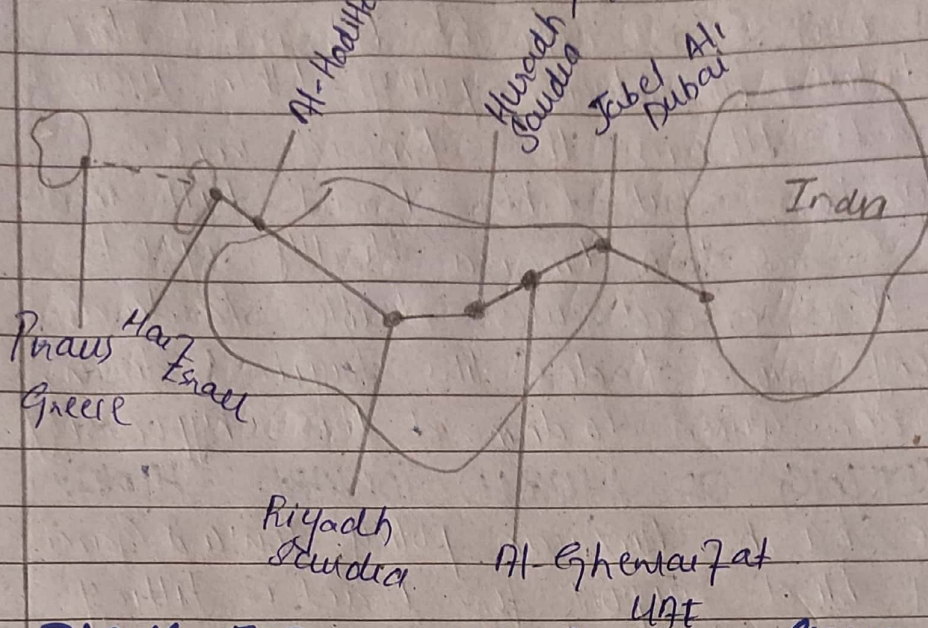 Al-Hadith
Huradh
Saudia
Jabel Ali
Dubai
Indn
Piraus
Greese
Haif
Israel
Riyadh
Saudia
Al-Ghewaifat
UAE